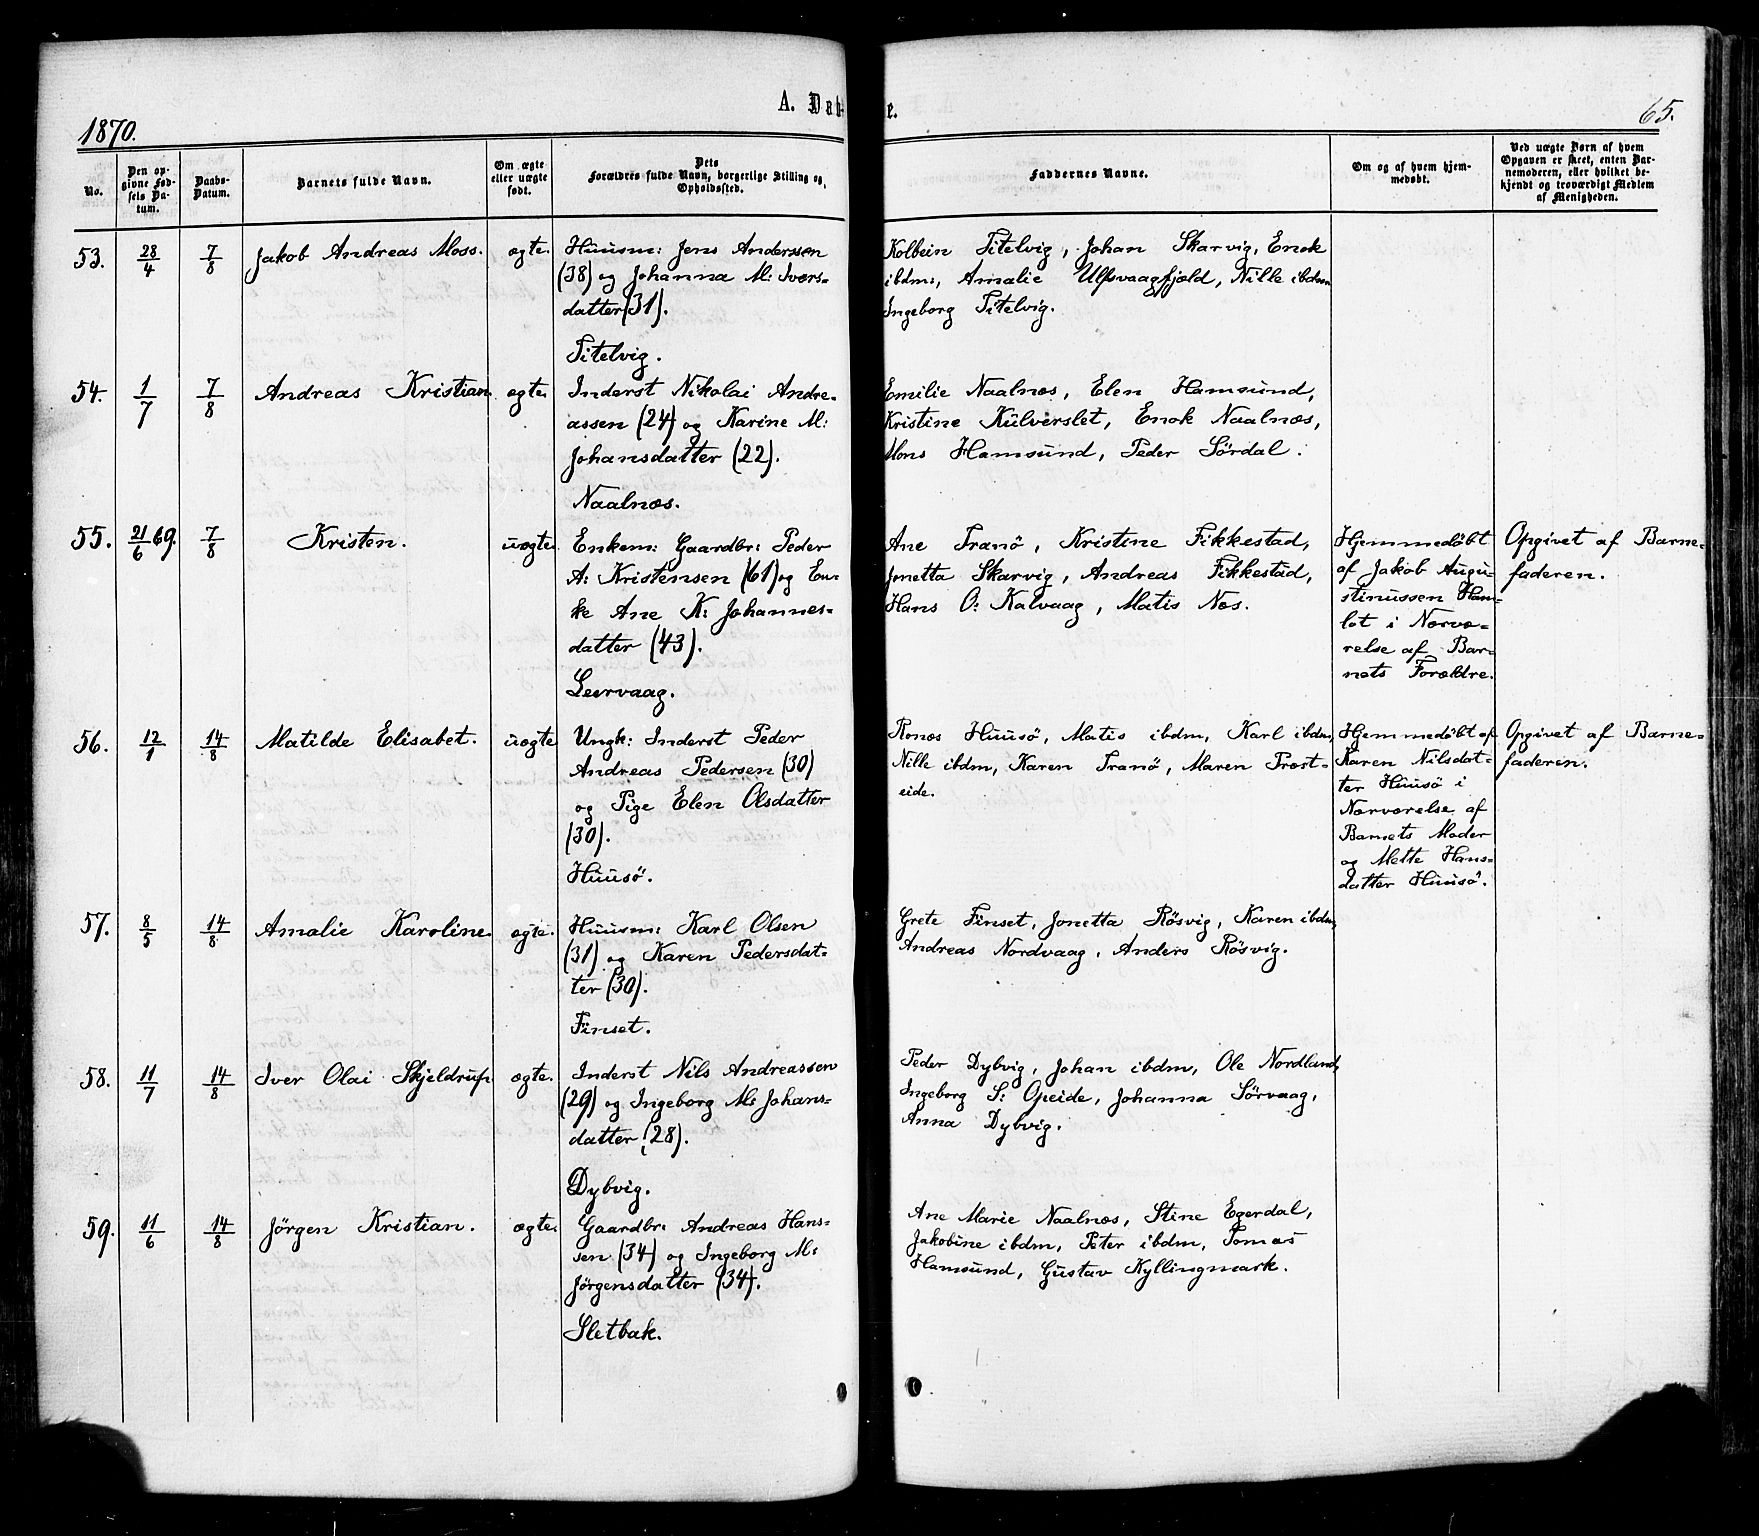 A. Dab- e.
1870.
65.
No.
Den op-
givne Fød-
sels Da-
tum.
Daabs-
Datum.
Barnets fulde Navn.
Om ægte
eller uægte
født.
Dets
Forældres fulde Navn, borgerlige Stilling og
Opholdssted.
Faddernes Navne.
Om og af hvem hjem-
medøbt.
Ved uægte Børn af hvem
Opgaven er skeet, enten Bar-
nemoderen, eller hvilket be-
kjendt og troværdigt Medlem
af Menigheden.
53. 28/4 7/8 Jakob Andreas Moss. ægte. Huusm: Jens Anderssen
(38) og Johanna M: Ivers-
datter (31).
Titelvig.
Kolbein Titelvig, Johan Skarvig, Enok
ibdm:, Amalie Ulfsvaagfjæld, Nille ibdm
Ingeborg Titelvig.
54. 1/7 7/8 Andreas Kristian ægte. Inderst Nikolai Andre-
assen (24) og Karine M:
Johansdatter (22).
Naalnæs.
Emilie Naalnæs, Elen Hamsund,
Kristine Külverslet, Enok Naalnæs,
Mons Hamsund, Peder Sördal.
55. 21/6 69. 7/8 Kristen. uægte. Enkem: Gaardbr: Peder
A: Kristensen (61) og En-
ke Ane K: Johannes-
datter (43).
Leervaag.
Ane Tranö, Kristine Fikkestad,
Jonetta Skarvig, Andreas Fikkestad,
Hans O: Kalvaag, Matis Næs.
Hjemmedøbt
af Jakob Augu-
stinussen Ham-
lot i Nærvæ-
relse af Bar-
nets Forældre.
Opgivet af Barne-
faderen.
56. 12/1 14/8 Matilde Elisabet. uægte Ungk: Inderst Peder
Andreas Pedersen (30)
og Pige Elen Olsdatter
(30).
Huusö.
Rones Huusö, Matis ibdm, Karl ibdm,
Nille ibdm, Karen Tranö, Maren Prest-
eide.
Hjemmedøbt af
Karen Nilsdat-
ter Huusö i
Nærværelse af
Barnets Moder
og Mette Hans-
datter Huusö.
Opgivet af Barne-
faderen.
57. 8/5 14/8 Amalie Karoline. ægte. Huusm: Karl Olsen
(31) og Karen Pedersdat-
ter (30).
Finset.
Grete Finset, Jonetta Rösvig, Karen ibdm,
Andreas Nordvaag, Anders Rösvig.
58. 11/7 14/8 Iver Olai Skjeldrup. ægte. Inderst Nils Andreassen
(29) og Ingeborg M: Johans-
datter (28).
Dybvig.
Peder Dybvig, Johan ibdm, Ole Nordland,
Ingeborg S: Opeide, Johanna Sörvaag,
Anna Dybvig.
59. 11/6 14/8 Jörgen Kristian. ægte. Gaardbr: Andreas Hans-
sen (34) og Ingeborg M:
Jörgensdatter (34).
Sletbak.
Ane Marie Naalnæs, Stine Egerdal,
Jakobine ibdm, Peter ibdm, Tomas
Hamsund, Gustav Kyllingmark.